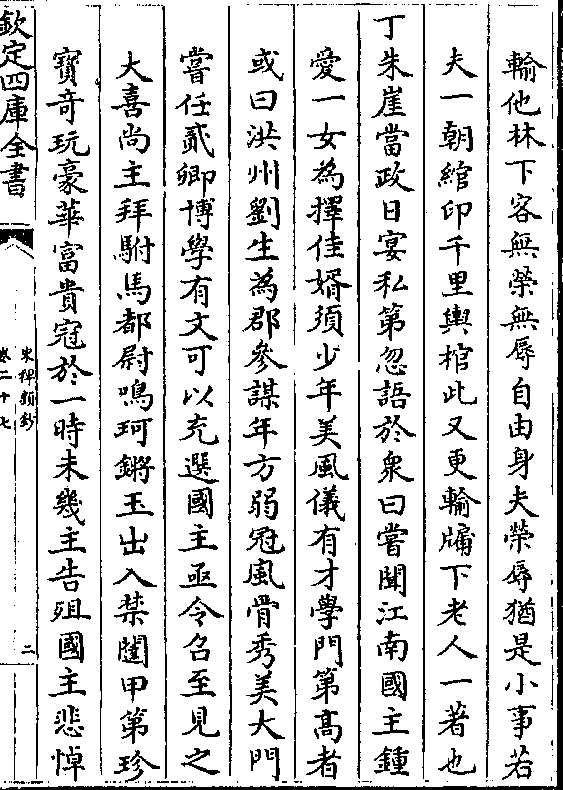 輸他林下客無榮無辱自由身夫榮辱猶是小事若
夫一朝綰印千里輿棺此又更輸牖下老人一著也
丁朱崖當政日宴私第忽語於衆曰嘗聞江南國主鍾
愛一女為擇佳婿須少年美風儀有才學門第高者
或曰洪州劉生為郡參謀年方弱冠風骨秀美大門
嘗任貳卿博學有文可以充選國主亟令召至見之
大喜尚主拜駙馬都尉鳴珂鏘玉出入禁闥甲第珍
寳竒玩豪華富貴冠於一時未幾主告殂國主悲悼
欽定四庫全書
宋稗類鈔
卷二十七
二